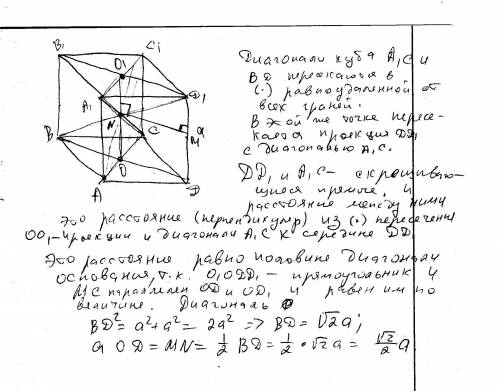 B₁ C₁
O₁
A₁ D₁
N a
M
B C
O
A D
Диагонали куба A₁C и
BD₁ пересекаются в
(·) равноудаленной от
всех граней.
В этой же точке пересе-
кается проекция DD₁
с диагональю A₁C.
DD₁ и A₁C – скрещиваю-
щиеся прямые, и
расстояние между ними
это расстояние (перпендикуляр) из (·) пересечения
OO₁ – проекции и диагонали A₁C к середине DD₁
Это расстояние равно половине диагонали
основания, т.к. O₁ODD₁ – прямоугольник и
параллелен OD и OD₁ и равен им по
величине. Диагональ
BD² = a² + a² = 2a² => BD = √2a;
а OD = MN = 1/2 BD = 1/2 · √2a = √2/2 a